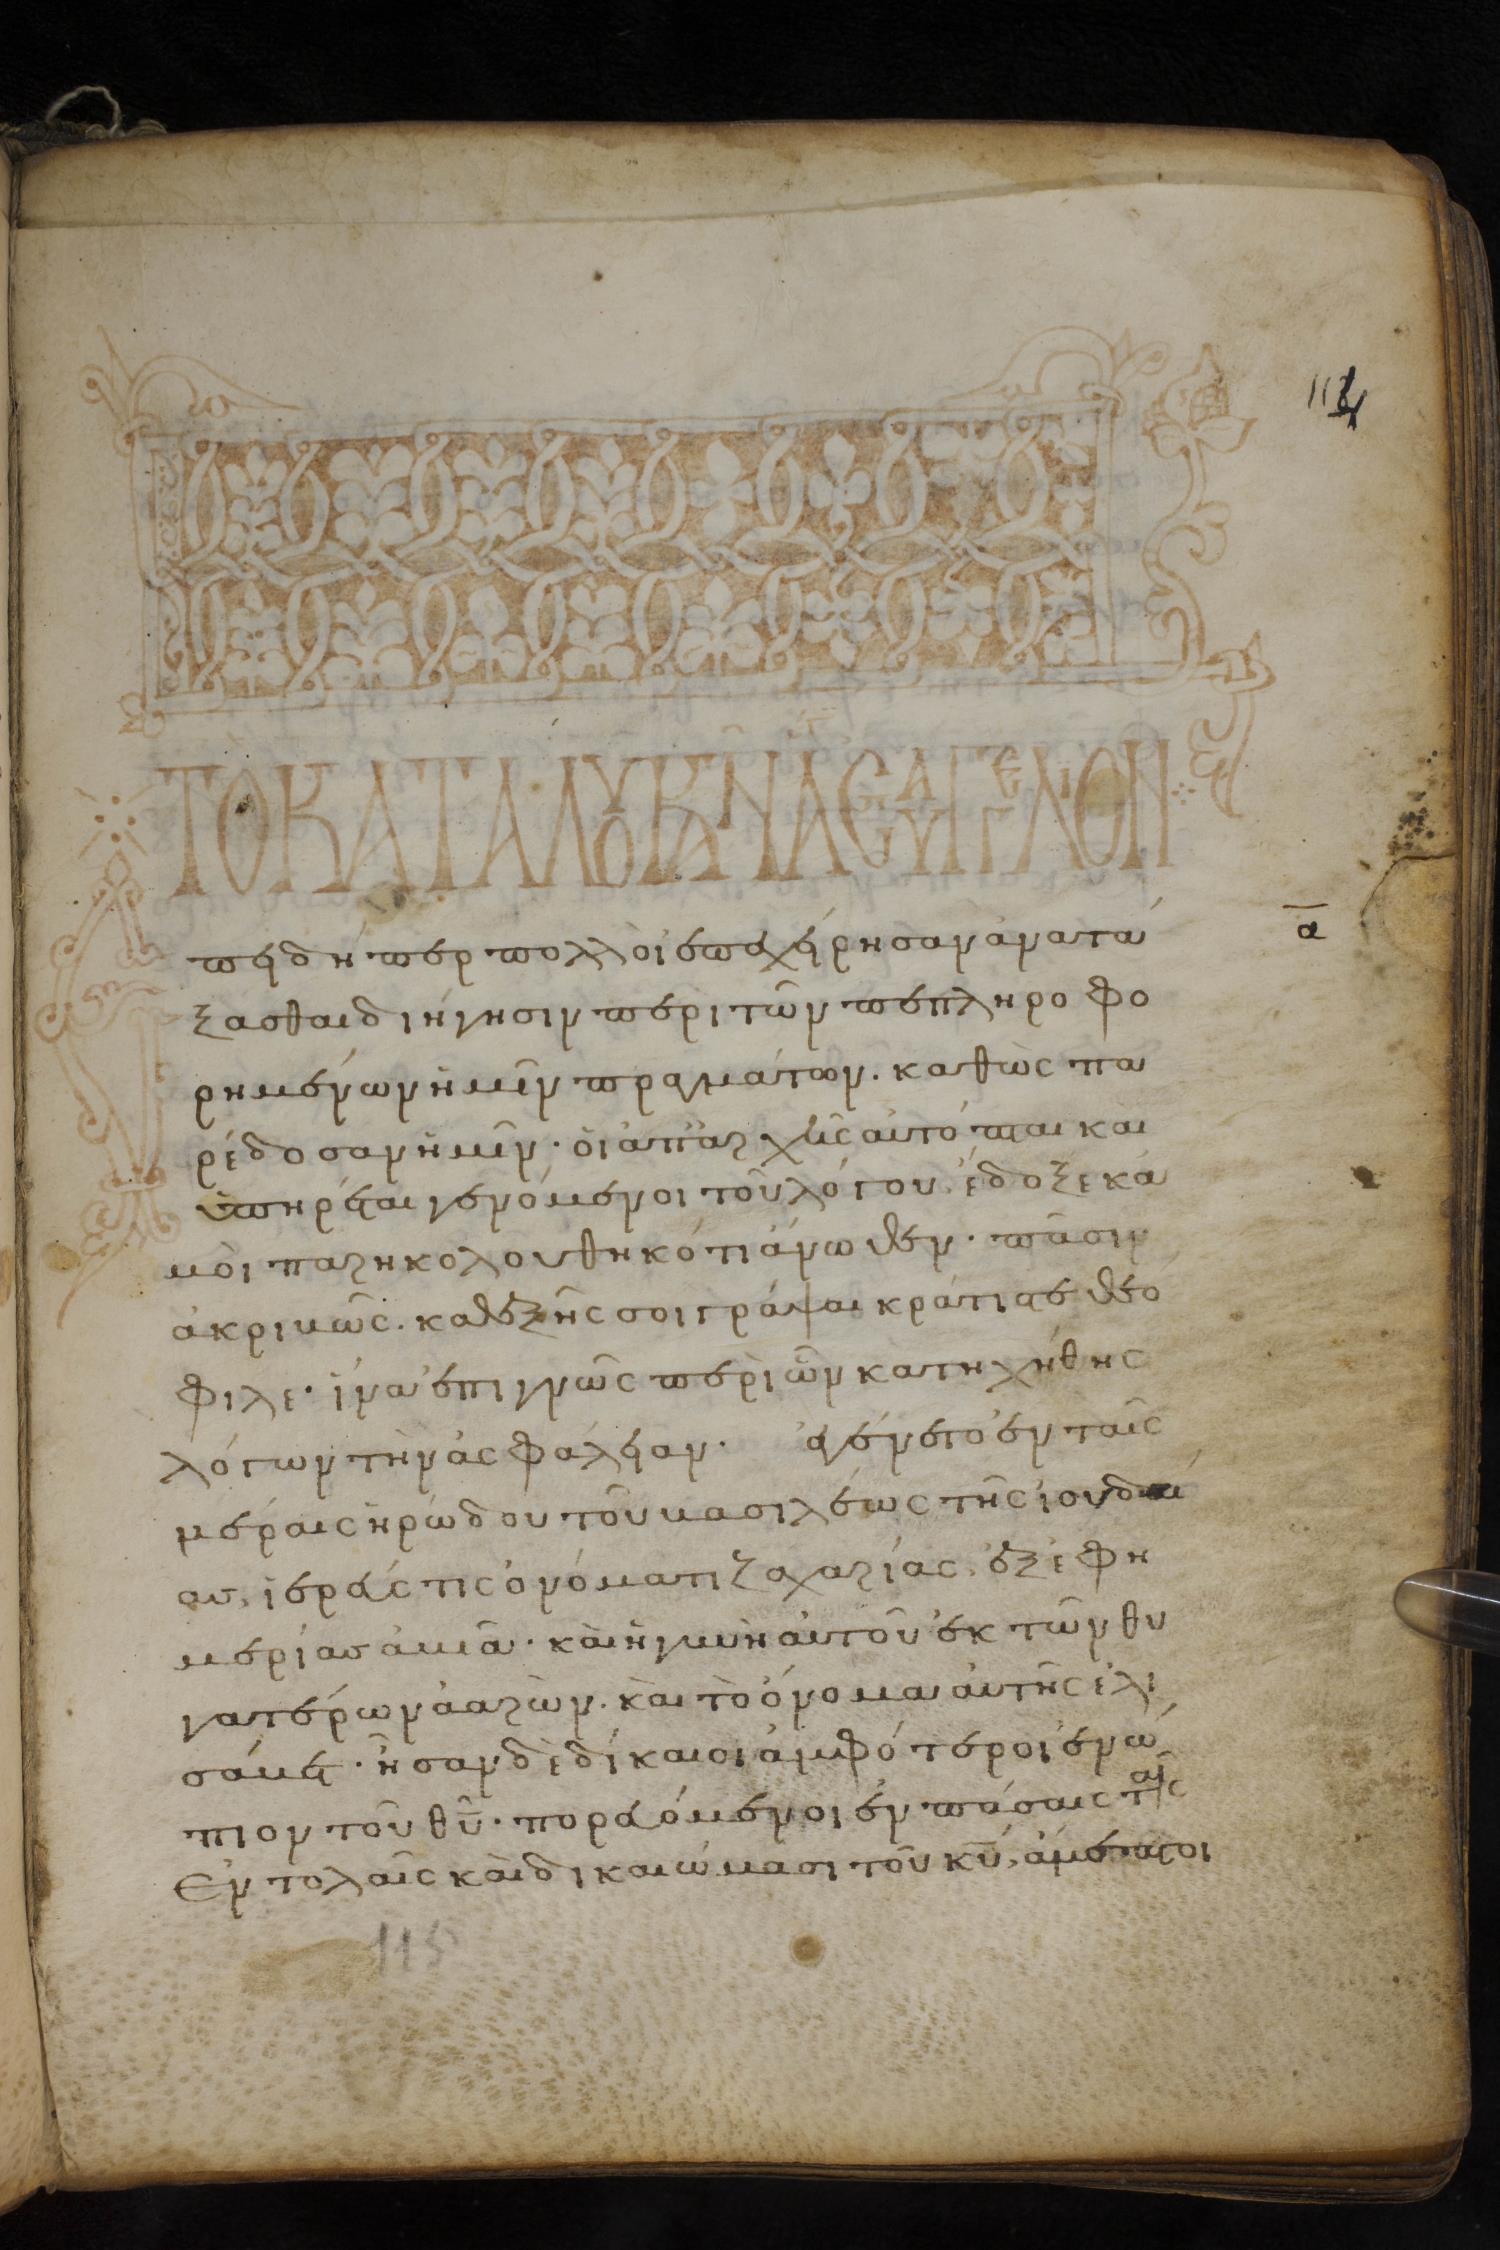 114
ΤΟ ΚΑΤΑ ΛΟΥΚΑΝ ΑΓΙΟΝ ΕΥΑΓΓΕΛΙΟΝ
α
Ἐπειδήπερ πολλοὶ ἐπεχείρησαν ἀνατά
ξασθαι διήγησιν περὶ τῶν πεπληροφο
ρημένων ἡμῖν πραγμάτων. καθὼς πα
ρέδοσαν ἡμῖν· οἱ ἀπ' ἀρχῆς αὐτόπται καὶ
ὑπηρέται γενόμενοι τοῦ λόγου, ἔδοξε κἀ
μοὶ παρηκολουθηκότι ἄνωθεν· πᾶσιν
ἀκριβῶς. καθεξῆς σοι γράψαι κράτιστε θεό
φιλε· ἵνα ἐπιγνῶς περὶ ὧν κατηχήθης
λόγων τὴν ἀσφάλειαν. ἐγένετο ἐν ταῖς
ἡμέραις ἡρώδου τοῦ βασιλέως τῆς ἰουδαί
ας, ἱερεύς τις ὀνόματι ζαχαρίας, ἐξ ἐφη
μερίας ἀβιά· καὶ ἡ γυνὴ αὐτοῦ ἐκ τῶν θυ
γατέρων ἀαρών. καὶ τὸ ὄνομα αὐτῆς ἐλι
σάβετ· ἦσαν δὲ δίκαιοι ἀμφότεροι ἐνώ
πιον τοῦ θῦ· πορευόμενοι ἐν πάσαις ταῖς
ἐντολαῖς καὶ δικαιώμασι τοῦ κῦ, ἄμεμπτοι
115